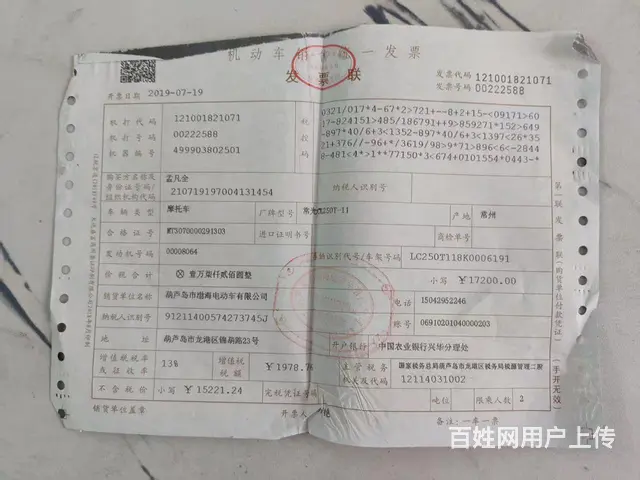 机动车销售统一发票
发票联
发票代码 121001821071
发票号码 00222588
开票日期 2019-07-19
机打代码 121001821071
机打号码 00222588
机器编号 499903802501
税控码
0321/017*4-67*2>721+--8+2+15-<09171>60
17-824151>485/186791++9>859271*152>649
-897*40/6+3<1352-897*40/6+3<1397<26*35
21+376//-96+*/3619/98>9*71>896<6<-2844
8-481<4*>1**77150*3<674+0101554+0443-*
购买方名称及身份证号码/组织机构代码
孟凡全
210719197004131454
纳税人识别号
车辆类型 摩托车
厂牌型号
产地 常州
合格证号
进口证明书号
商检单号
发动机号码 00008064
车辆识别代号/车架号码 LC250T118K0006191
价税合计 ⊗ 壹万柒仟贰佰圆整
小写 ¥17200.00
销货单位名称 葫芦岛市渤海电动车有限公司
电话 15042952246
纳税人识别号 91211400574273745J
账号 06910201040000203
地址 葫芦岛市龙港区锦葫路23号
开户银行 中国农业银行兴华分理处
增值税税率或征收率 13%
增值税税额 ¥1978.76
主管税务机关及代码
12114031002
不含税价 小写 ¥15221.24
完税凭证号码
吨位
限乘人数 2
销货单位盖章
开票人
备注:一车一票
第一联 发票联(购货单位付款凭证)
(手开无效)
百姓网用户上传